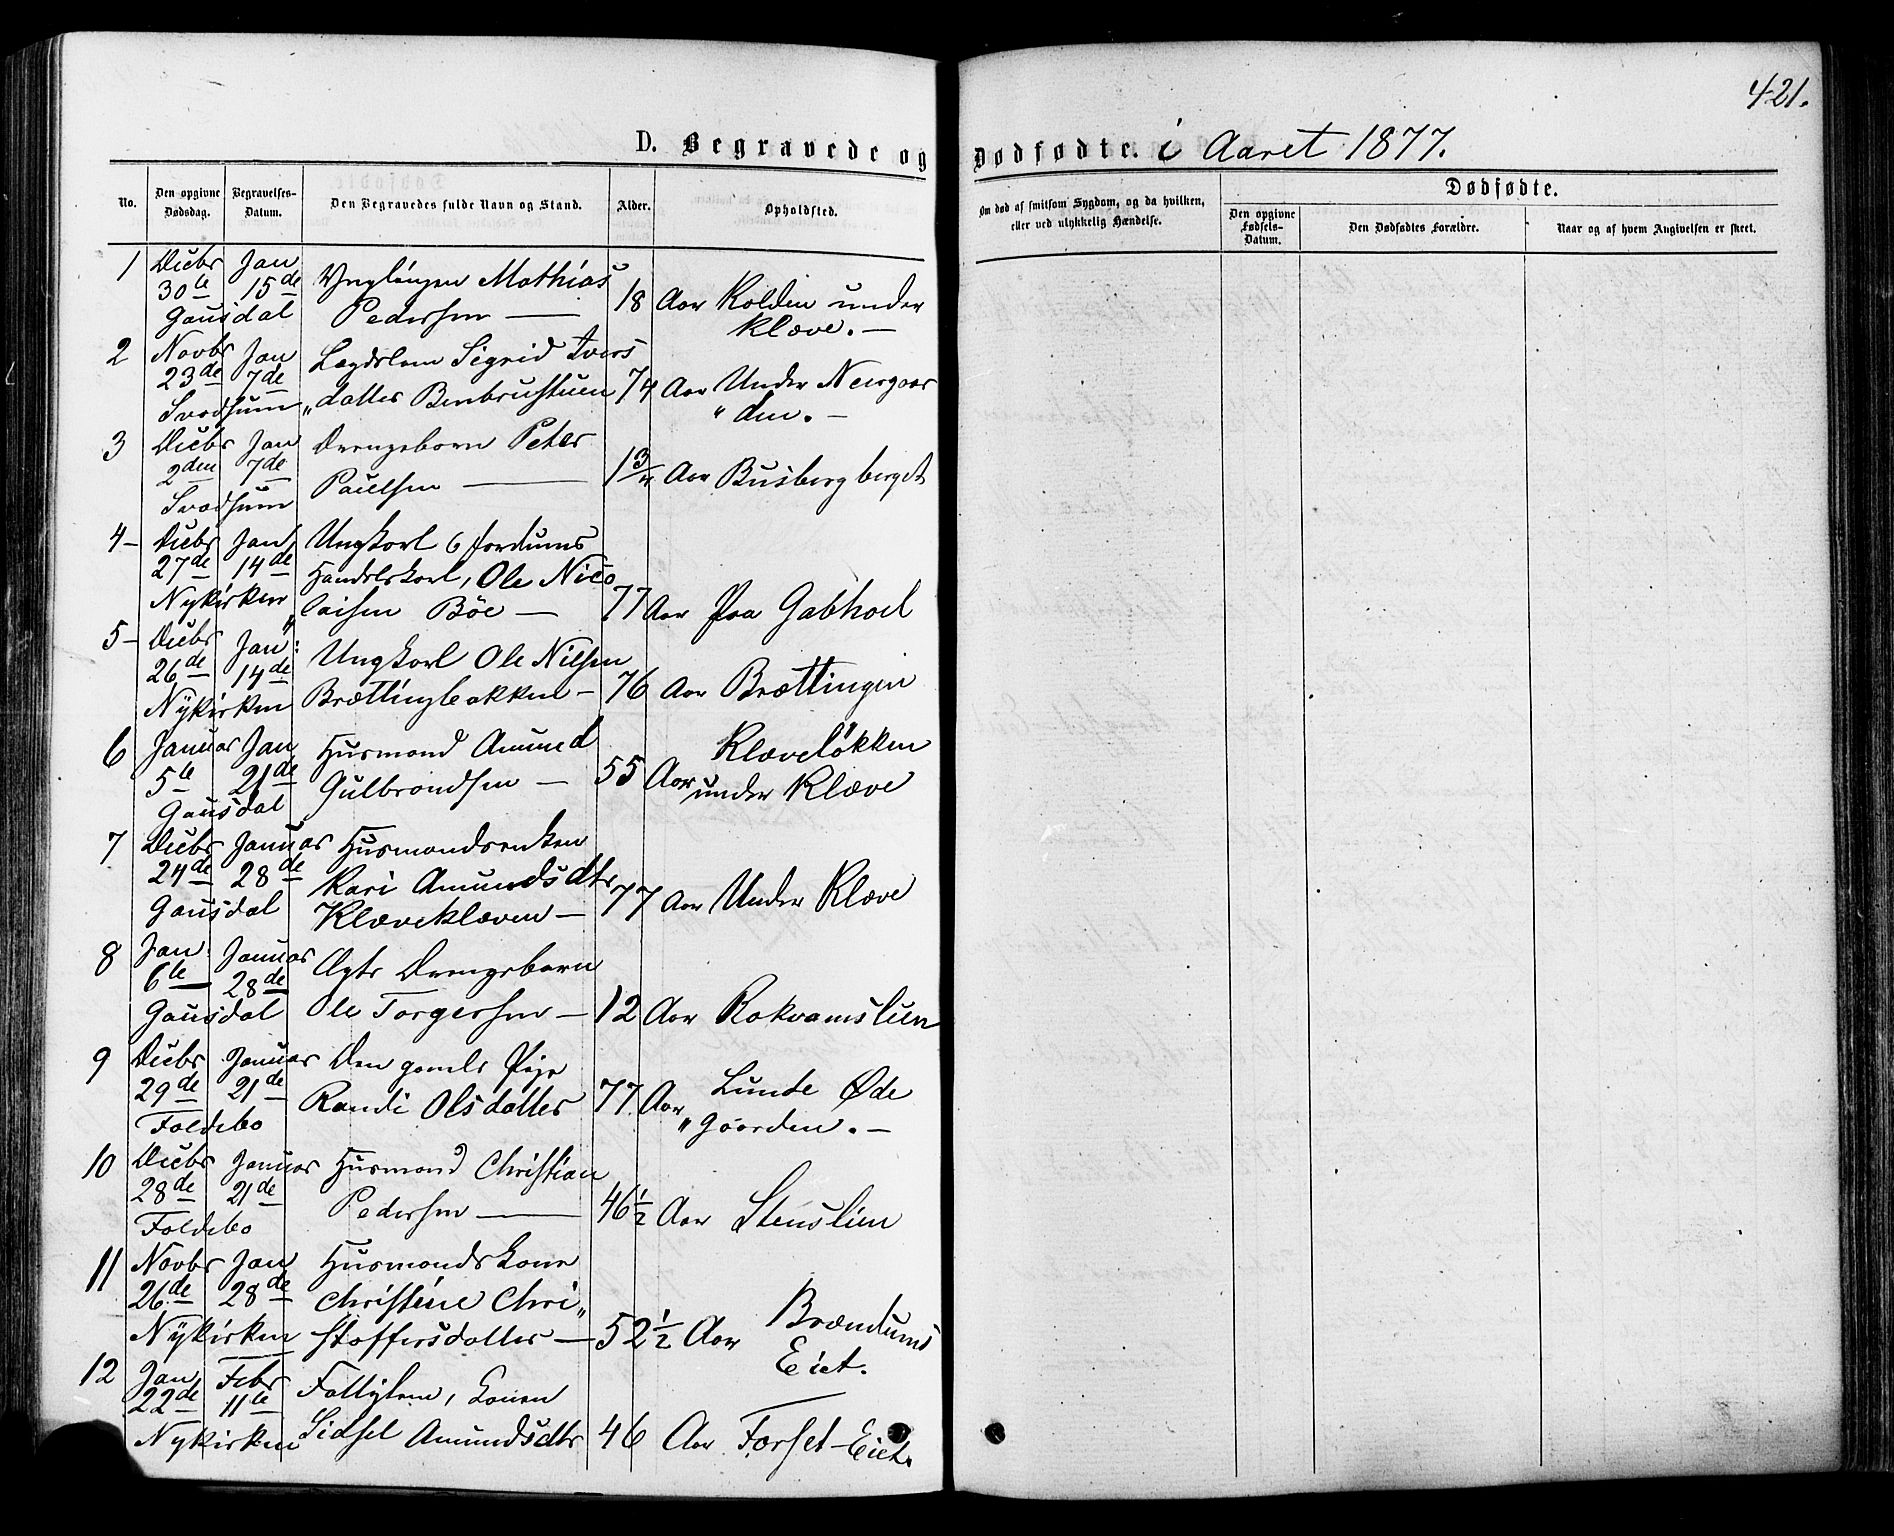 421.
D. Begravede og Dødfødte. i Aaret 1877.
No.
Den opgivne Dødsdag.
Begravelses-Datum.
Den Begravedes fulde Navn og Stand.
Alder.
Opholdsted.
Om død af smitsom Sygdom, og da hvilken, eller ved ulykkelig Hændelse.
Dødfødte.
Den opgivne Fødsels-Datum.
Den Dødfødtes Forældre.
Naar og af hvem Angivelsen er skeet.
1 Decbr Jan
30te 15de Ynglingen Mathias
Gausdal Pedersen — 18 Aar Kolden under
Klæve. —
2 Novbr Jan Lægdslem Sigrid Ivers
23de 7de „datter Benbrustuen 74 Aar Under Neisgaar
Svadsum „den. —
3 Decbr Jan Drengebarn Peter
2den 7de Paulsen — 1 3/4 Aar Busbergberget
Svadsum
4 – Decbr Jan Ungkarl & fordums
27de 14de Handelskarl, Ole Nico
Nykirken „laisen Böe — 77 Aar Paa Gabhoel
5 – Decbr Jan: Ungkarl Ole Nilsen
26de 14de Brættingbakken – 76 Aar Brættingen
Nykirken
6 Januar Jan Husmand Amund
5te 21de Gulbrandsen — 55 Aar Klæveløkken
Gausdal under Klæve
7 Decbr Januar Husmandsenken
24de 28de Kari Amundsdtr 77 Aar Under Klæve
Gausdal Klæveklæven —
8 Jan Januar Ægte Drengebarn
6te 28de Ole Torgersen — 12 Aar Rokvamslien
Gausdal
9 Decbr Januar Den gamle Pige
29de 21de Randi Olsdatter 77 Aar Lunde Øde
Foldebo „gaarden. —
10 Decbr Januar Husmand Christian
28de 21de Pedersen — 46 1/2 Aar Stenslien
Foldebo
11 Novbr Jan Husmands Kone
26de 28de Christine Chri„
Nykirken stoffersdatter — 52 1/2 Aar Brændums
Eiet.
12 Jan Febr Fattiglem, Konen
22de 11te Sidsel Amundsdtr 46 Aar Forset-Eiet.
Nykirken